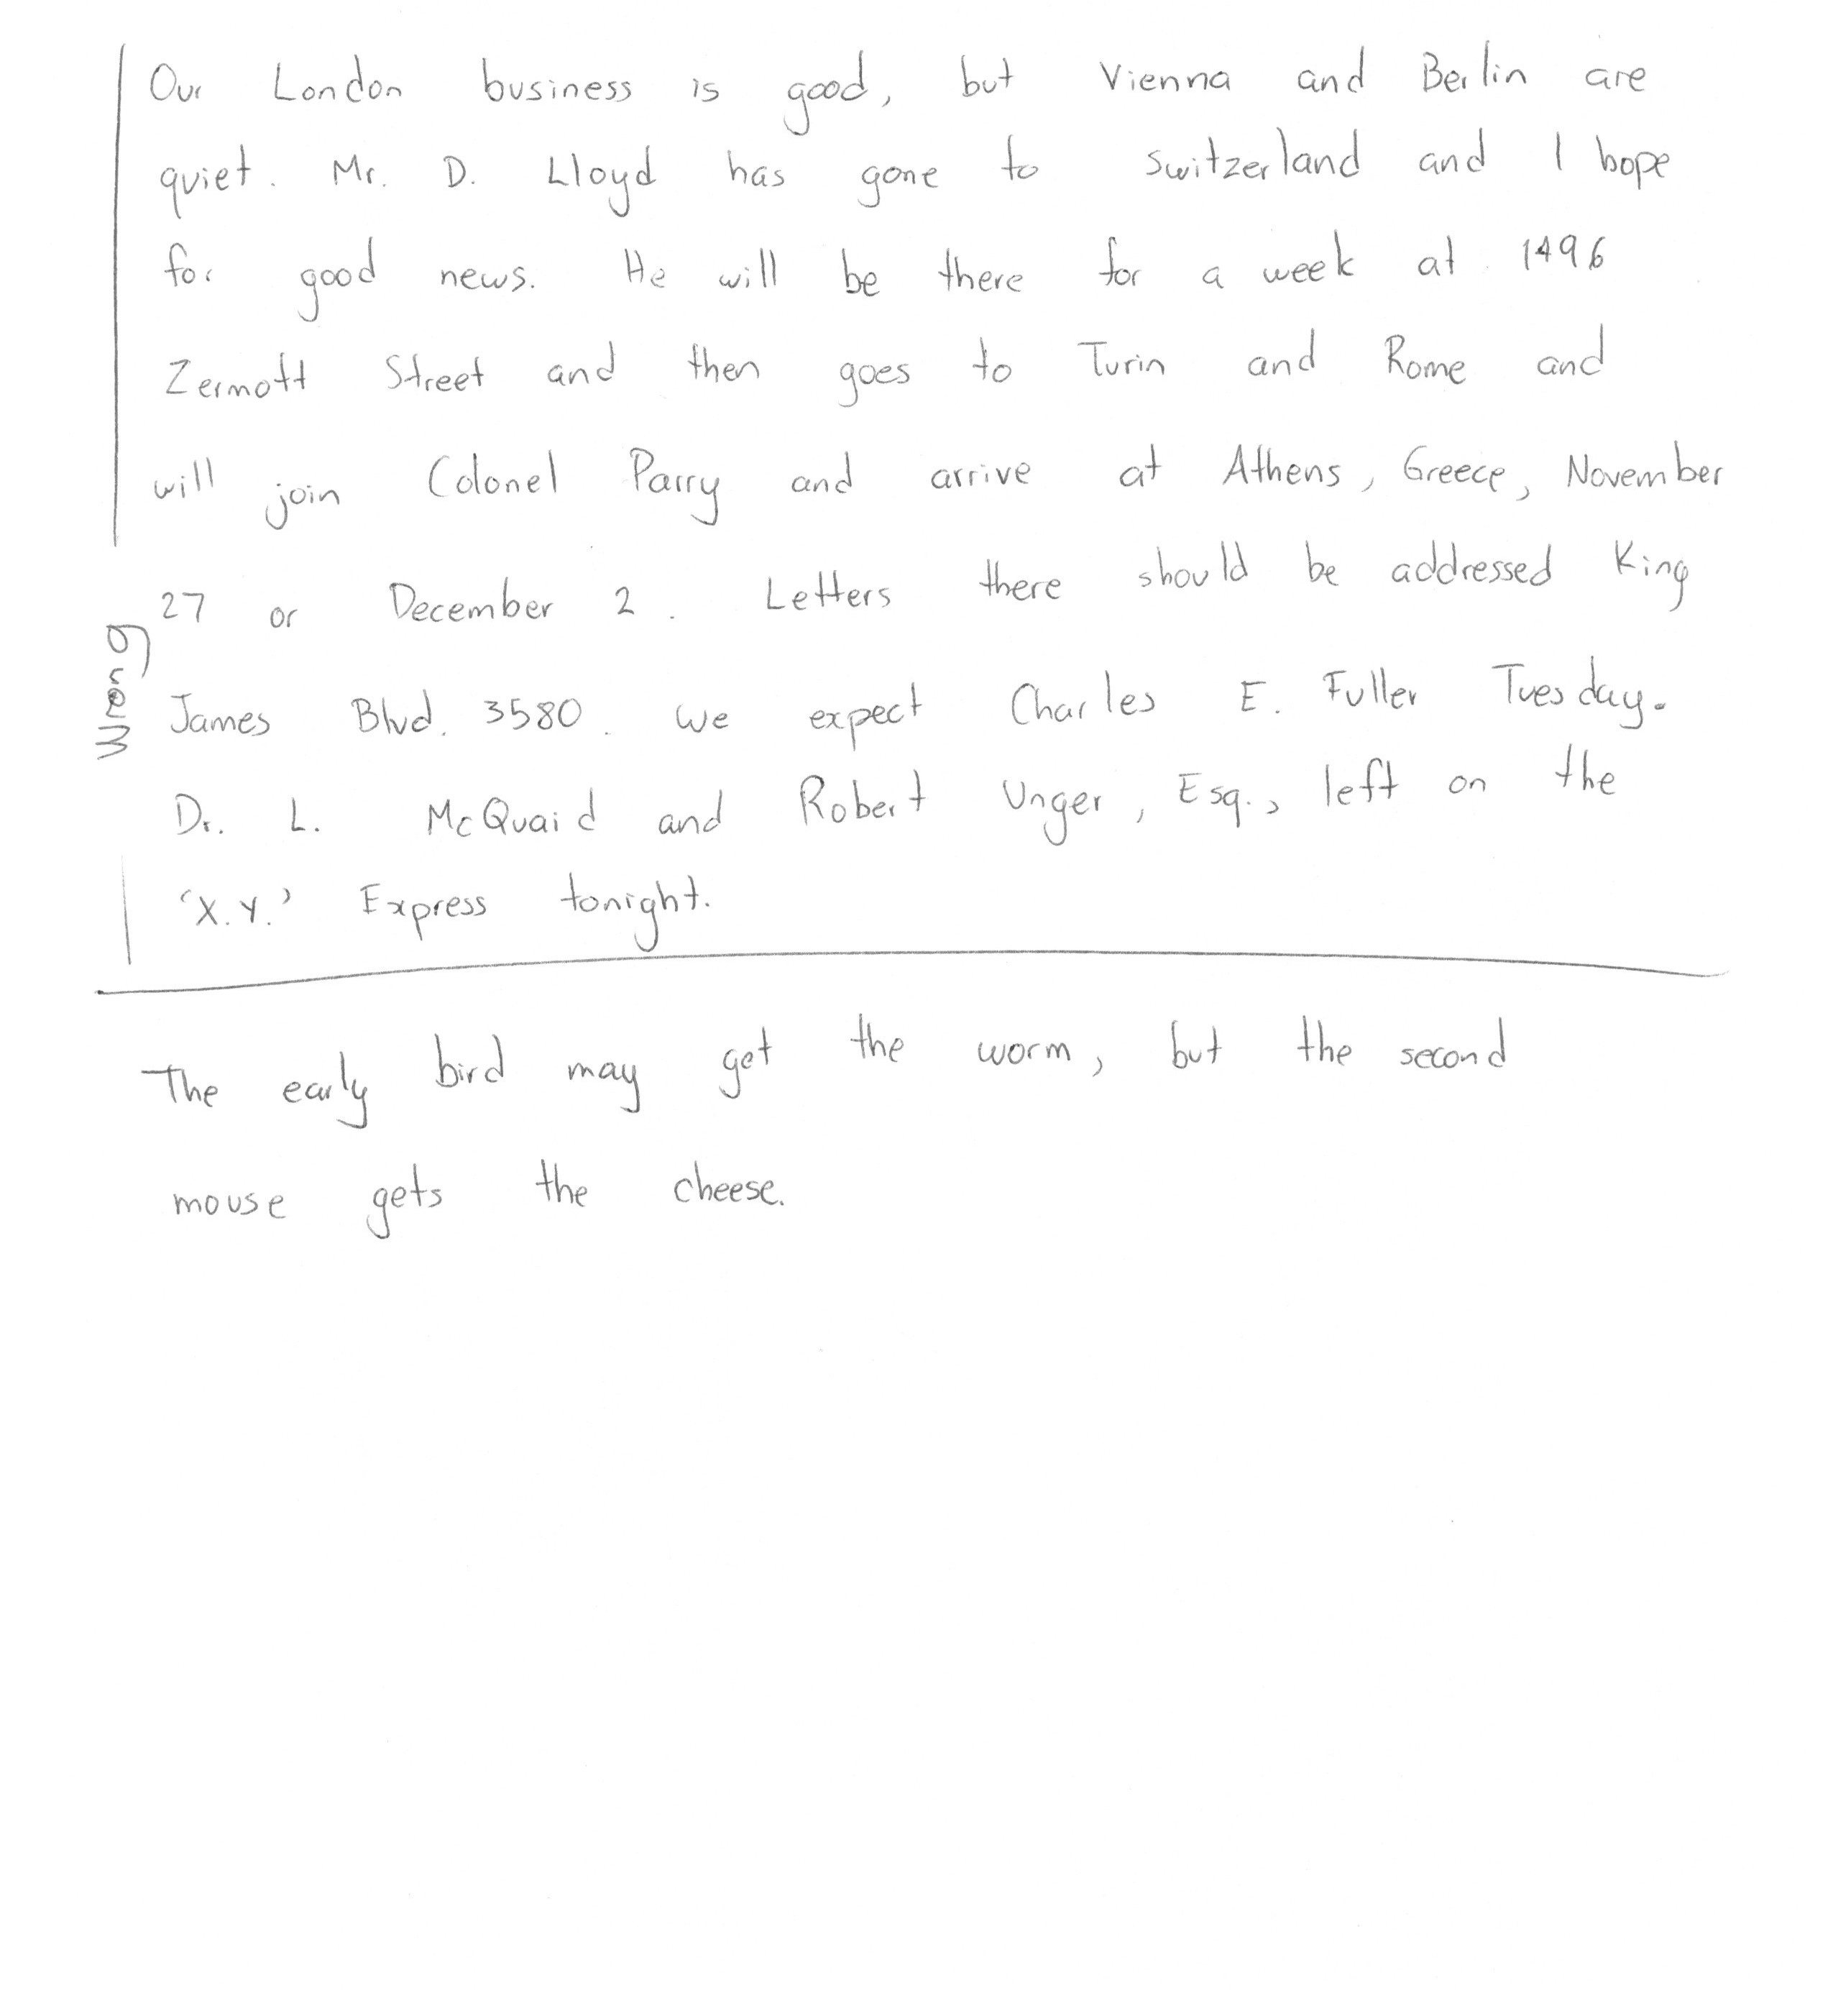 Our London business is good, but Vienna and Berlin are
quiet. Mr. D. Lloyd has gone to Switzerland and I hope
for good news. He will be there for a week at 1496
Zermott Street and then goes to Turin and Rome and
will join Colonel Parry and arrive at Athens, Greece, November
27 or December 2. Letters there should be addressed King
James Blvd. 3580. We expect Charles E. Fuller Tuesday.
Dr. L. McQuaid and Robert Unger, Esq., left on the
'X.Y.' Express tonight.
The early bird may get the worm, but the second
mouse gets the cheese.